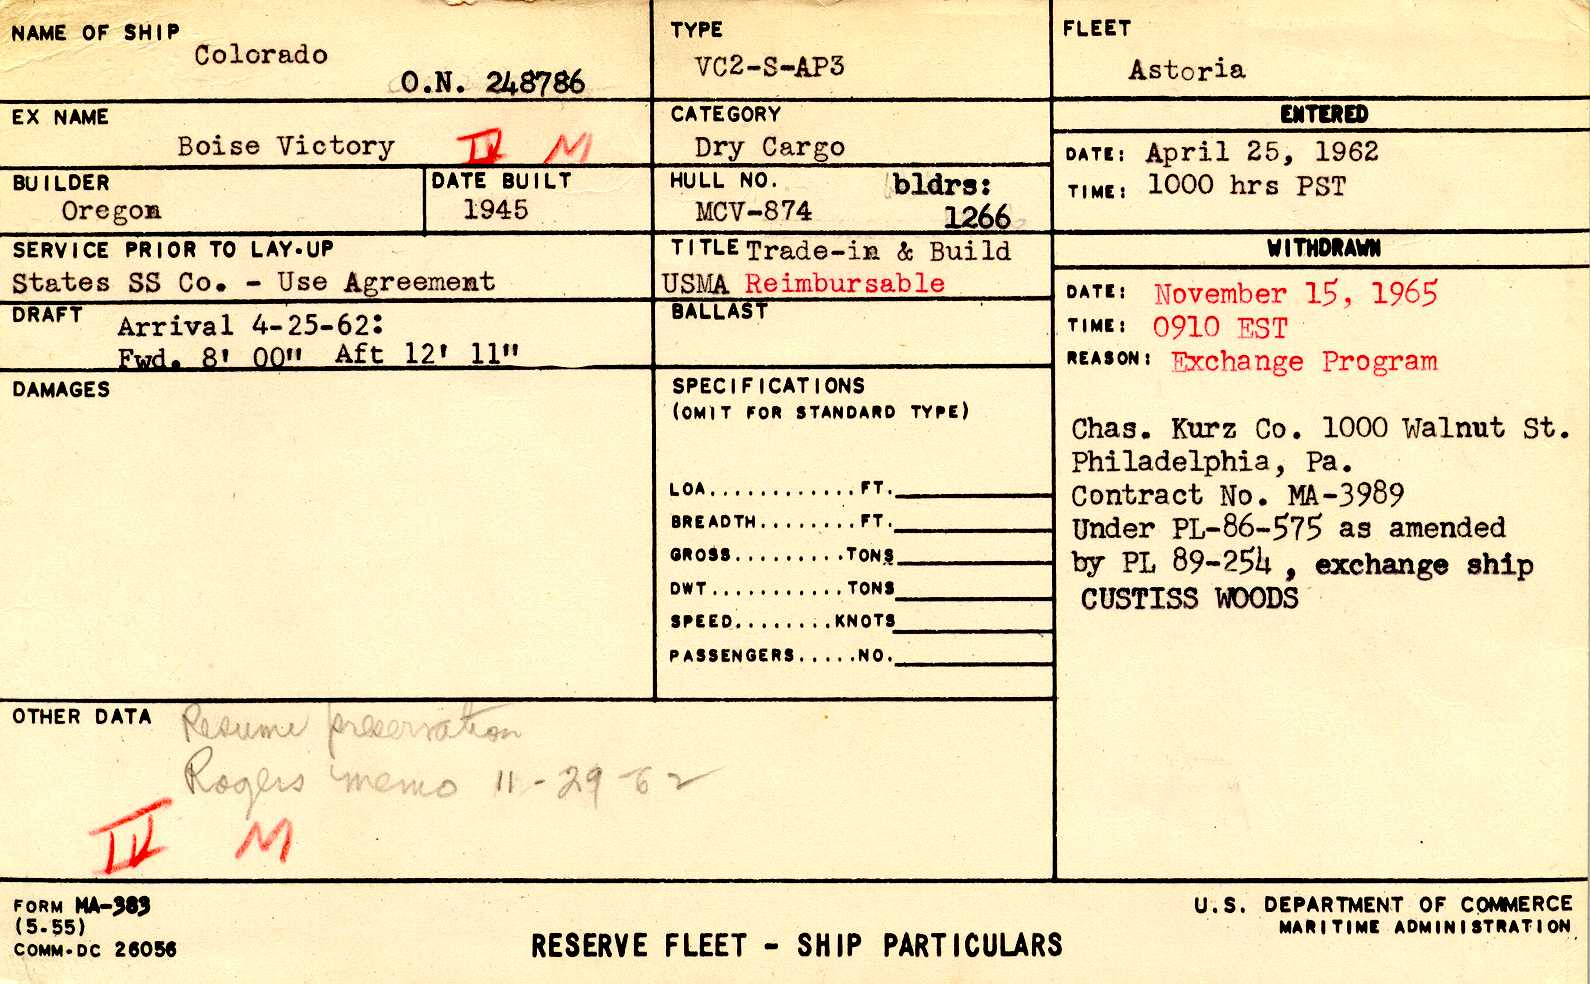 NAME OF SHIP
Colorado
O.N. 248786
TYPE
VC2-S-AP3
FLEET
Astoria
EX NAME
Boise Victory IV M
CATEGORY
Dry Cargo
ENTERED
DATE: April 25, 1962
TIME: 1000 hrs PST
BUILDER
Oregon
DATE BUILT
1945
HULL NO. bldrs:
MCV-874 1266
SERVICE PRIOR TO LAY-UP
States SS Co. - Use Agreement
TITLE Trade-in & Build
USMA Reimbursable
WITHDRAWN
DATE: November 15, 1965
TIME: 0910 EST
REASON: Exchange Program
DRAFT Arrival 4-25-62:
Fwd. 8' 00" Aft 12' 11"
BALLAST
DAMAGES
SPECIFICATIONS
(OMIT FOR STANDARD TYPE)
LOA............FT.
BREADTH........FT.
GROSS.........TONS
DWT...........TONS
SPEED........KNOTS
PASSENGERS.....NO.
Chas. Kurz Co. 1000 Walnut St.
Philadelphia, Pa.
Contract No. MA-3989
Under PL-86-575 as amended
by PL 89-254, exchange ship
CUSTISS WOODS
OTHER DATA Resume preservation
Rogers memo 11-29-62
IV M
FORM MA-383
(5-55)
COMM-DC 26056
RESERVE FLEET - SHIP PARTICULARS
U.S. DEPARTMENT OF COMMERCE
MARITIME ADMINISTRATION